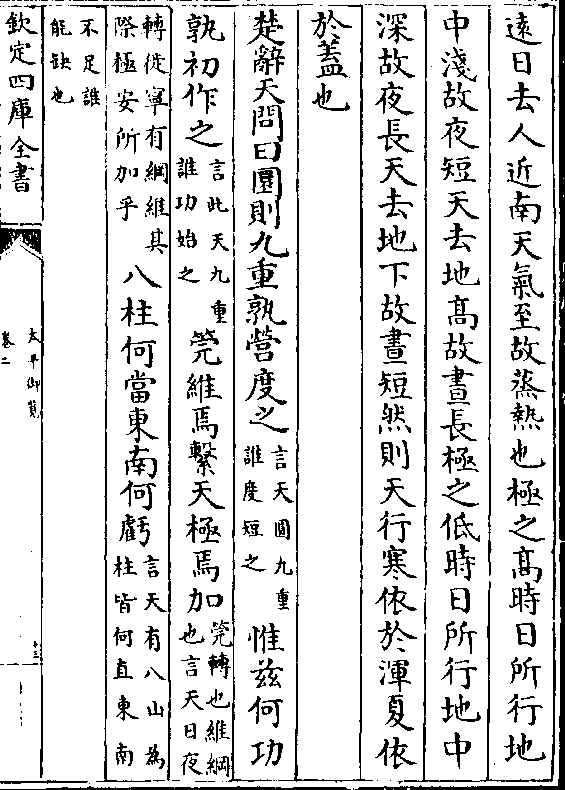 遠日去人近南天氣至故蒸熱也極之高時日所行地
中淺故夜短天去地高故晝長極之低時日所行地中
深故夜長天去地下故晝短然則天行寒依於渾夏依
於蓋也
楚辭天問曰圜則九重孰營度之言天圓九重誰度短之惟兹何功
孰初作之言此天九重誰功始之筦維焉繫天極焉加筦轉也維綱也言天日夜
轉徙寧有綱維其際極安所加乎八柱何當東南何虧言天有八山為柱皆何直東南
不足誰能缺也
欽定四庫全書
太平御覽
卷二
十三